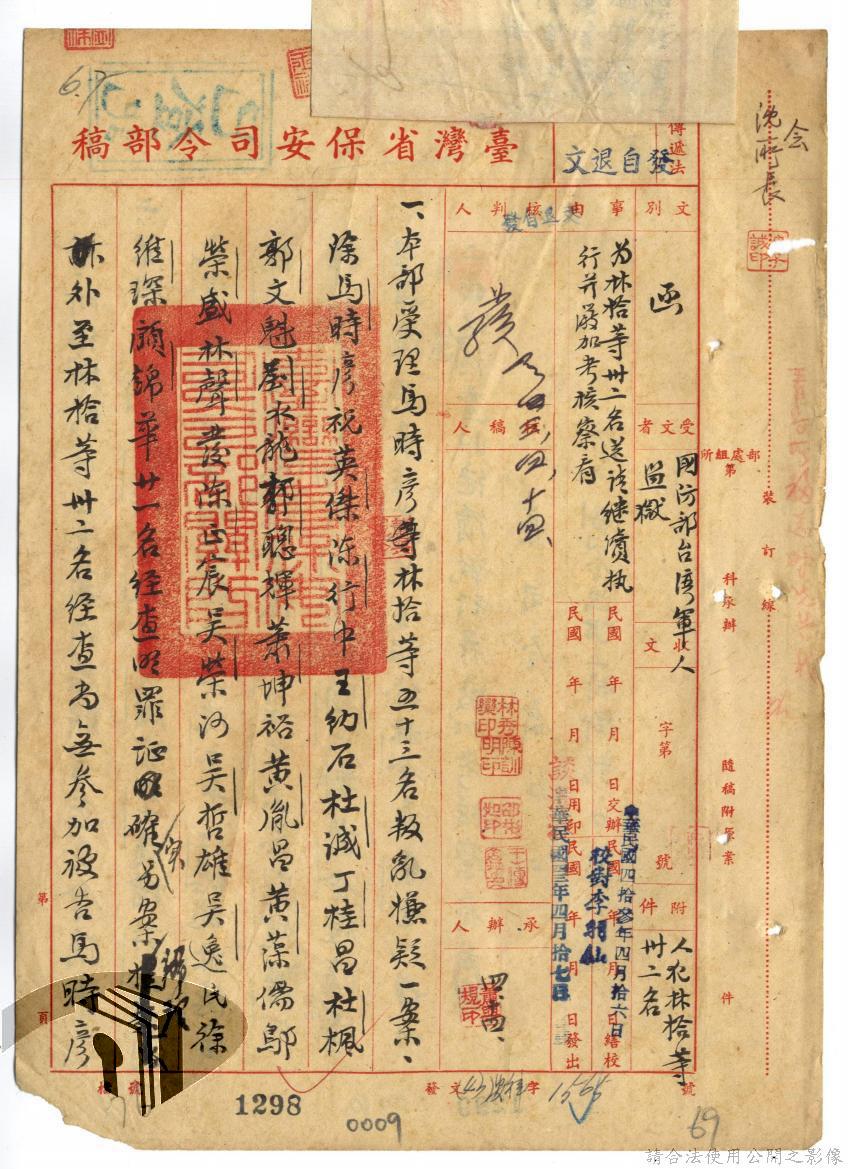 臺灣省保安司令部稿
發自退文
傳遞法
文別
函
受文者
國防部台灣軍人監獄
收文
字第
號
附件
人犯林拾等卅二名
事由
為林拾等卅二名送請繼續執行并嚴加考核察看
民國 年 月 日交辦
民國 年 月 日繕校
民國 年 月 日用印
民國 年 月 日發出
中華民國四拾叁年四月拾六日
校對李羽仙
中華民國四三年四月拾七日
核判人
核稿人
承辦人
一、本部受理馬時彥等林拾等五十三名叛亂嫌疑一案、
除馬時彥祝英傑陳行中王幼石杜誠丁桂昌杜楓
郭文魁劉水龍郭聰輝蕭坤裕黃胤昌黃藻儒鄔
榮盛林聲發陳正宸吳榮河吳哲雄吳逸民徐
維琛顧錦華廿一名經查明罪證確實另案
訴外至林拾等卅二名經查尚無參加被告馬時彥
部處組所
第
科承辦
隨稿附原案
件
裝訂線
第
頁
檔號
發文
字
1565
號
1298
0009
69
令
請合法使用公開之影像